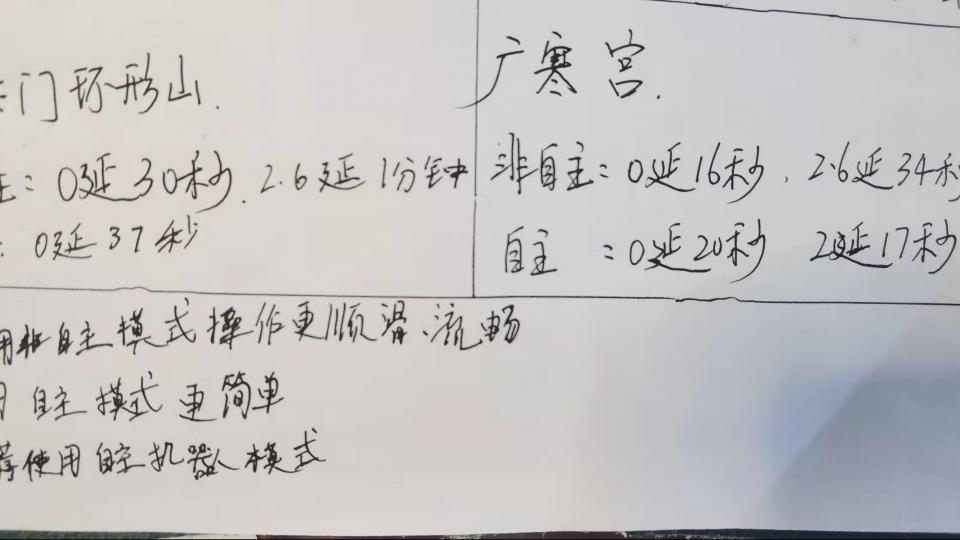 门环形山.
广寒宫.
: 0延30秒. 2.6延1分钟
: 0延37秒
非自主: 0延16秒. 2.6延34秒
自主 : 0延20秒 2延17秒
用非自主模式操作更顺滑、流畅
自主模式更简单
荐使用自主机器人模式